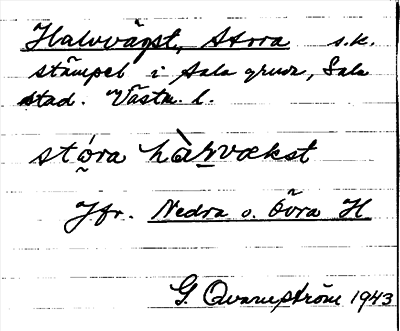 Halvvägst, Stora s.k.
stämpel i Sala gruva, Sala
stad. Västm. l.
stóra hàlvvækst
Jfr. Nedra o. Övra H
G. Qvarnström 1943